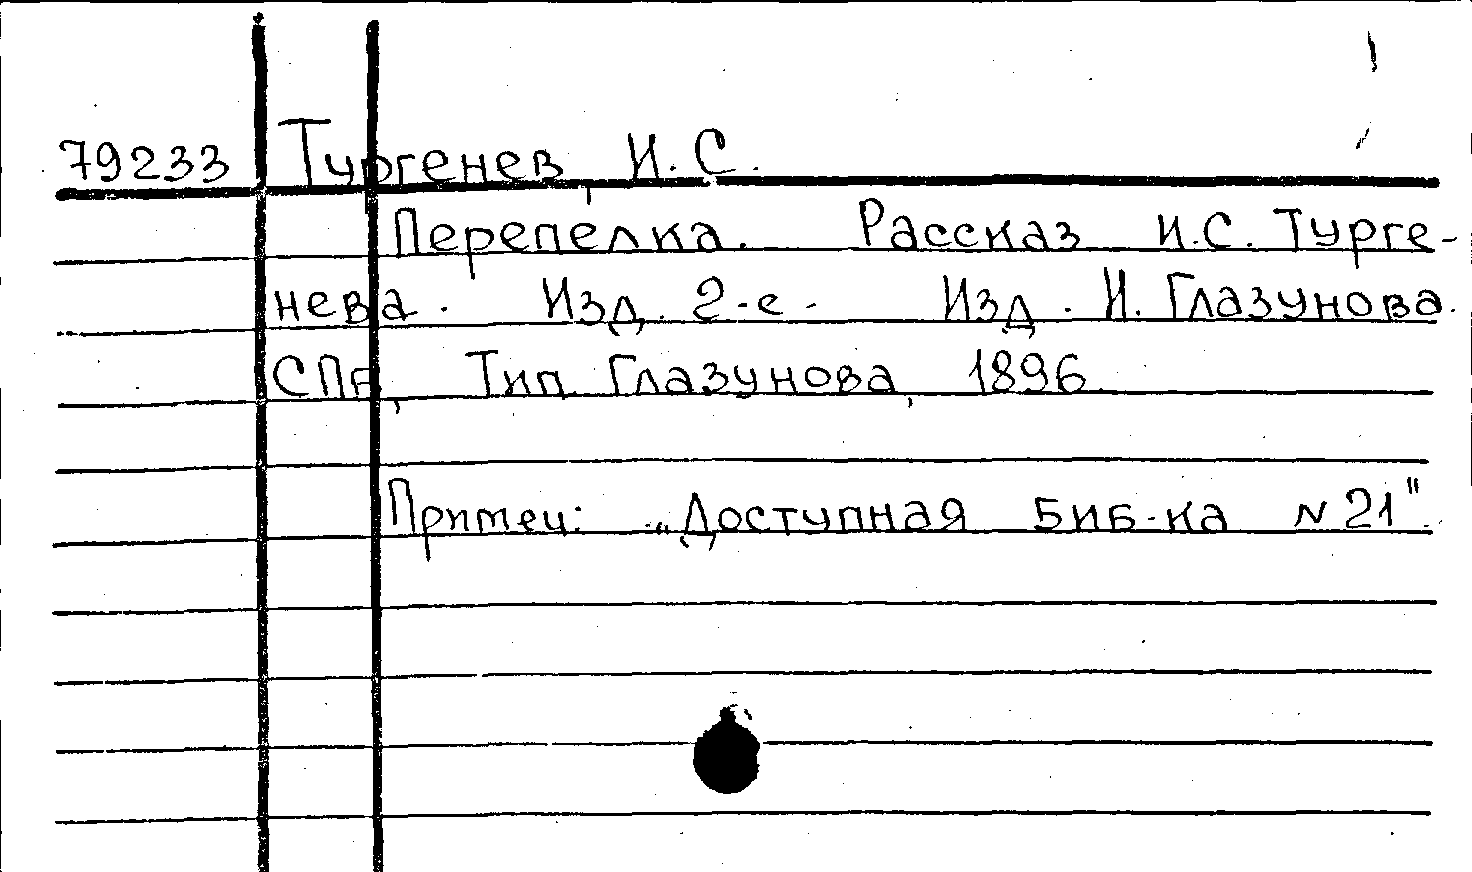 79233 Тургенев, И. С.
Перепелка. Рассказ И.С. Турге-
нева. Изд. 2-е. Изд. И. Глазунова.
СПб, Тип. Глазунова, 1896.
Примеч: „Доступная биб-ка N 21".